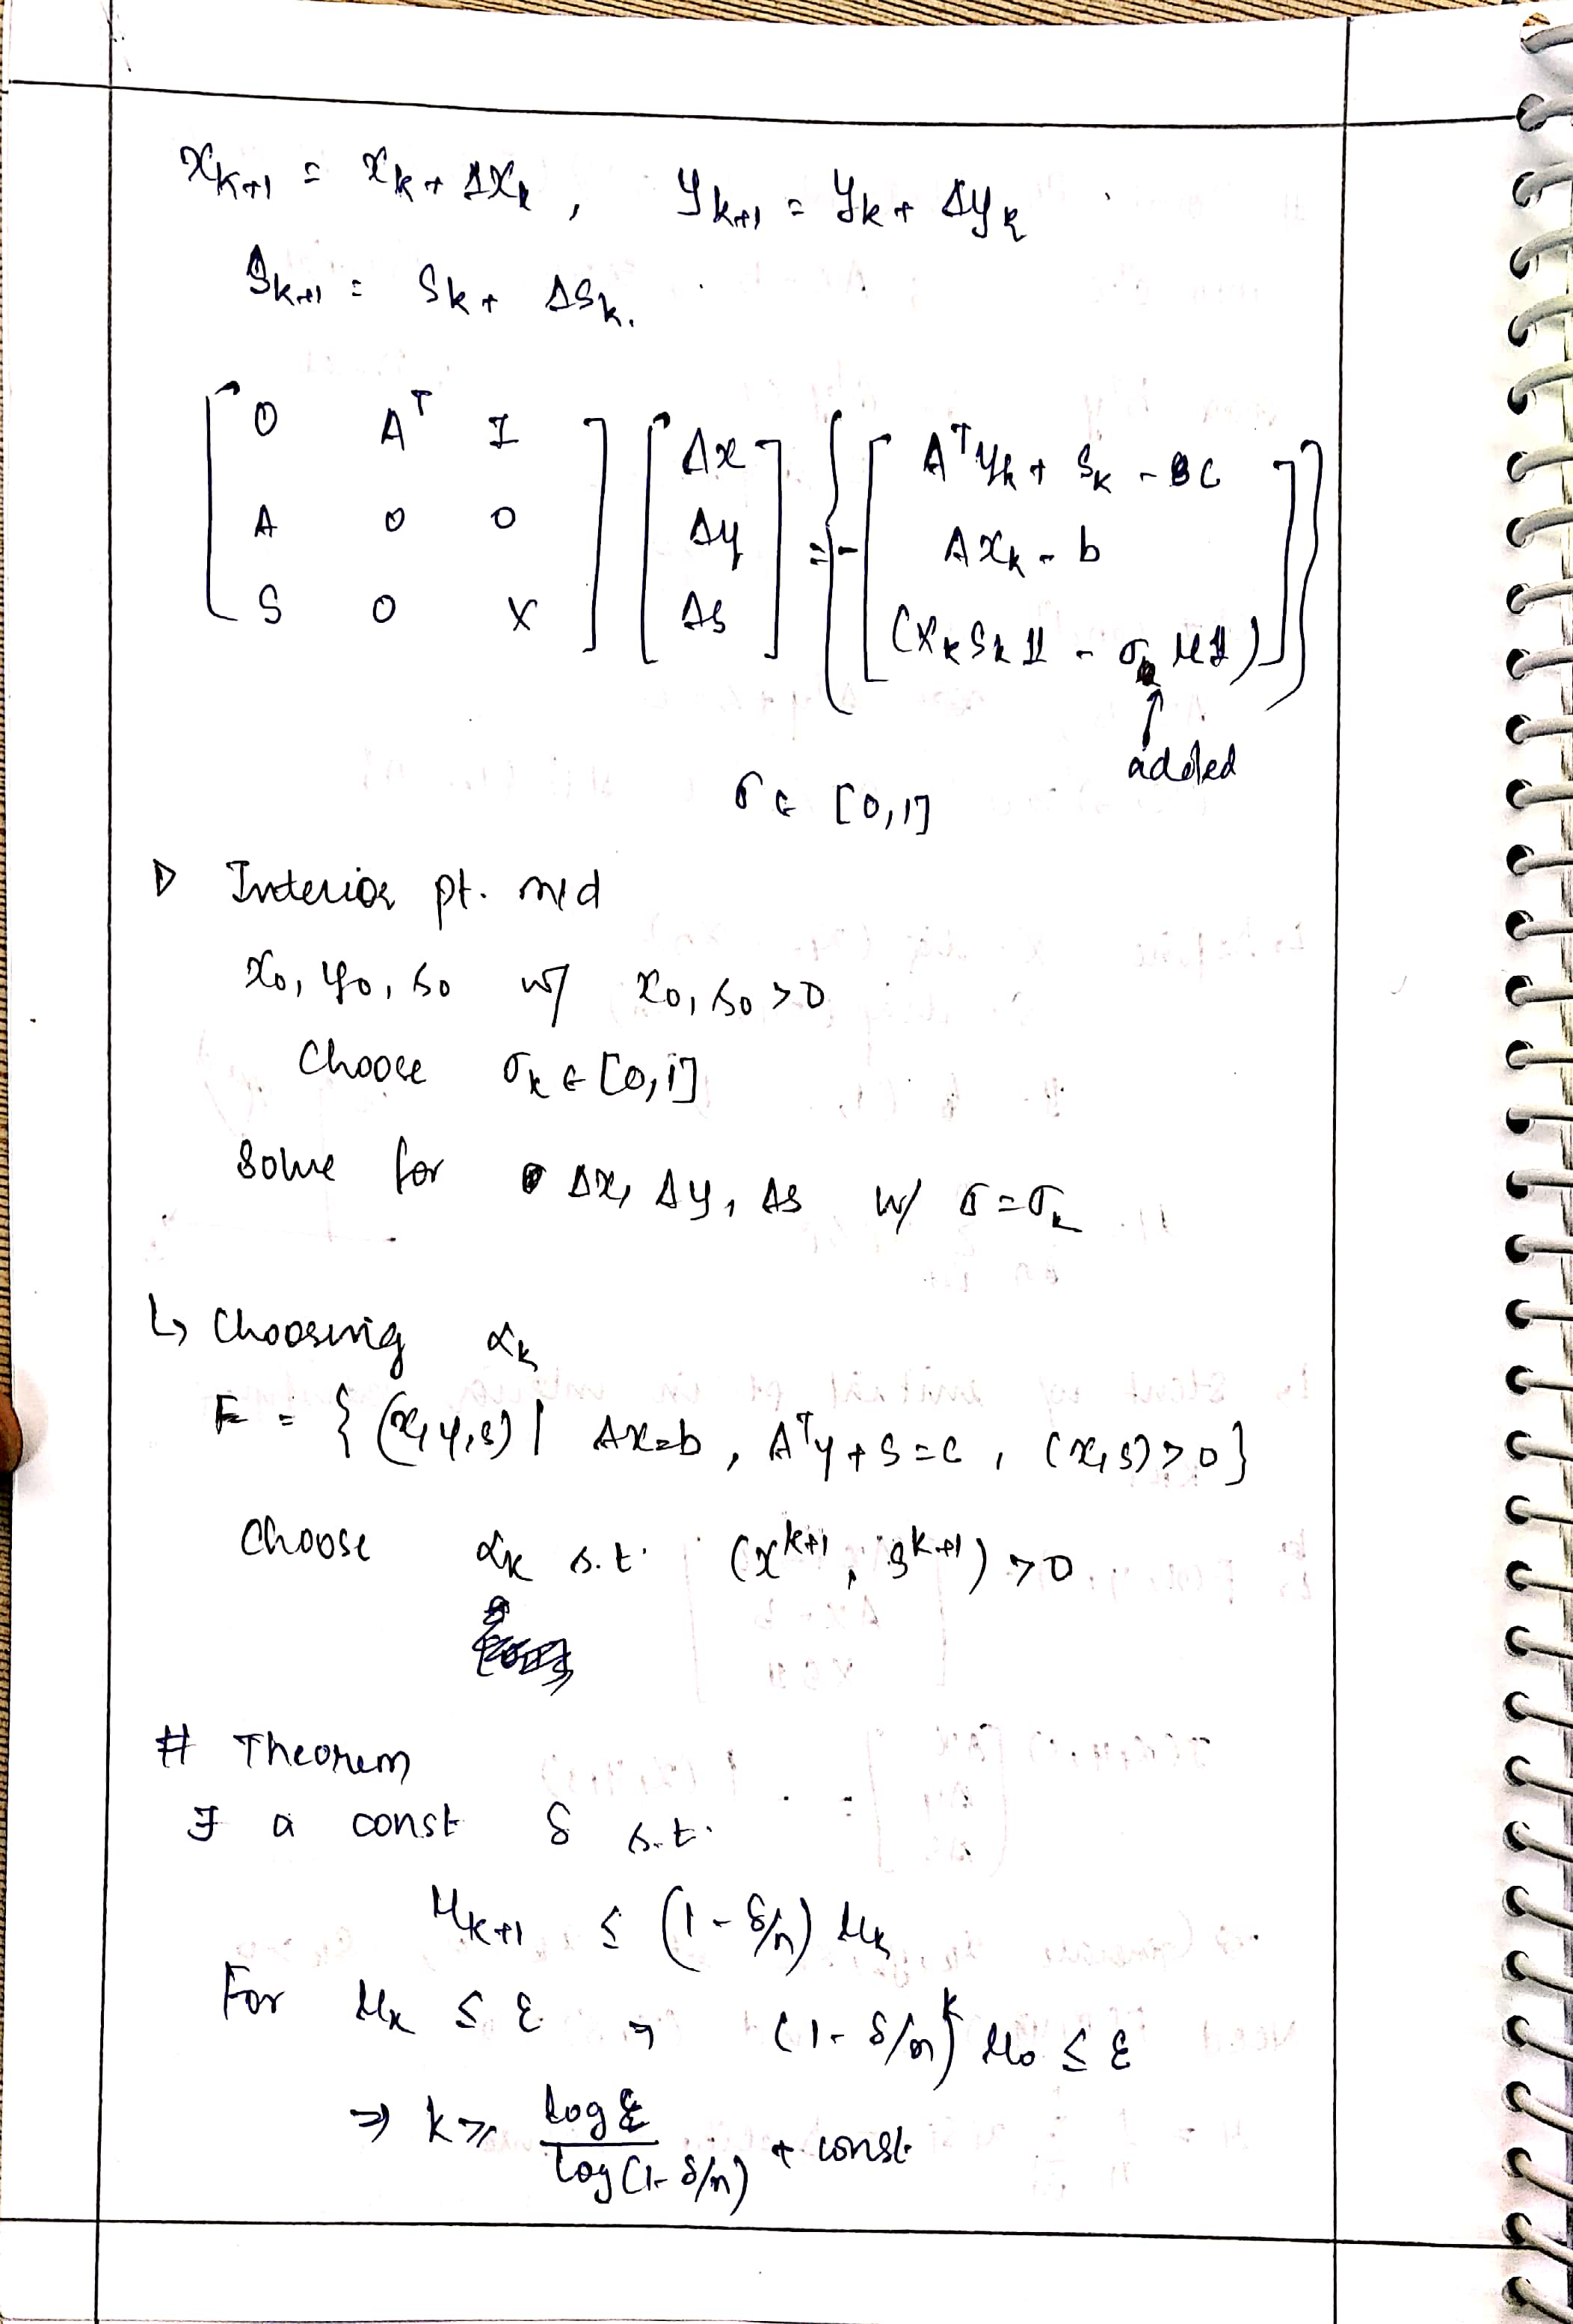 x_{k+1} = x_k + Δx_k , y_{k+1} = y_k + Δy_k
s_{k+1} = s_k + Δs_k.
[ 0 A^T I ; A 0 0 ; S 0 X ] [ Δx ; Δy ; Δs ] = { - [ A^T y_k + s_k - c ; A x_k - b ; (X_k S_k 𝟙 - σ μ 𝟙) ] }
↑
added
σ ∈ [0,1]
▷ Interior pt. md
x_0, y_0, s_0 w/ x_0, s_0 > 0
Choose σ_k ∈ [0,1]
Solve for Δx, Δy, Δs w/ σ = σ_k
↳ Choosing α_k
F = { (x,y,s) | Ax=b , A^T y + s = c , (x,s) > 0 }
Choose α_k s.t. (x^{k+1}, s^{k+1}) > 0
# Theorem
∃ a const δ s.t.
μ_{k+1} ≤ (1 - δ/n) μ_k
For μ_k ≤ ε ⇒ (1 - δ/n)^k μ_0 ≤ ε
⇒ k ≥ log ε / log(1 - δ/n) + const